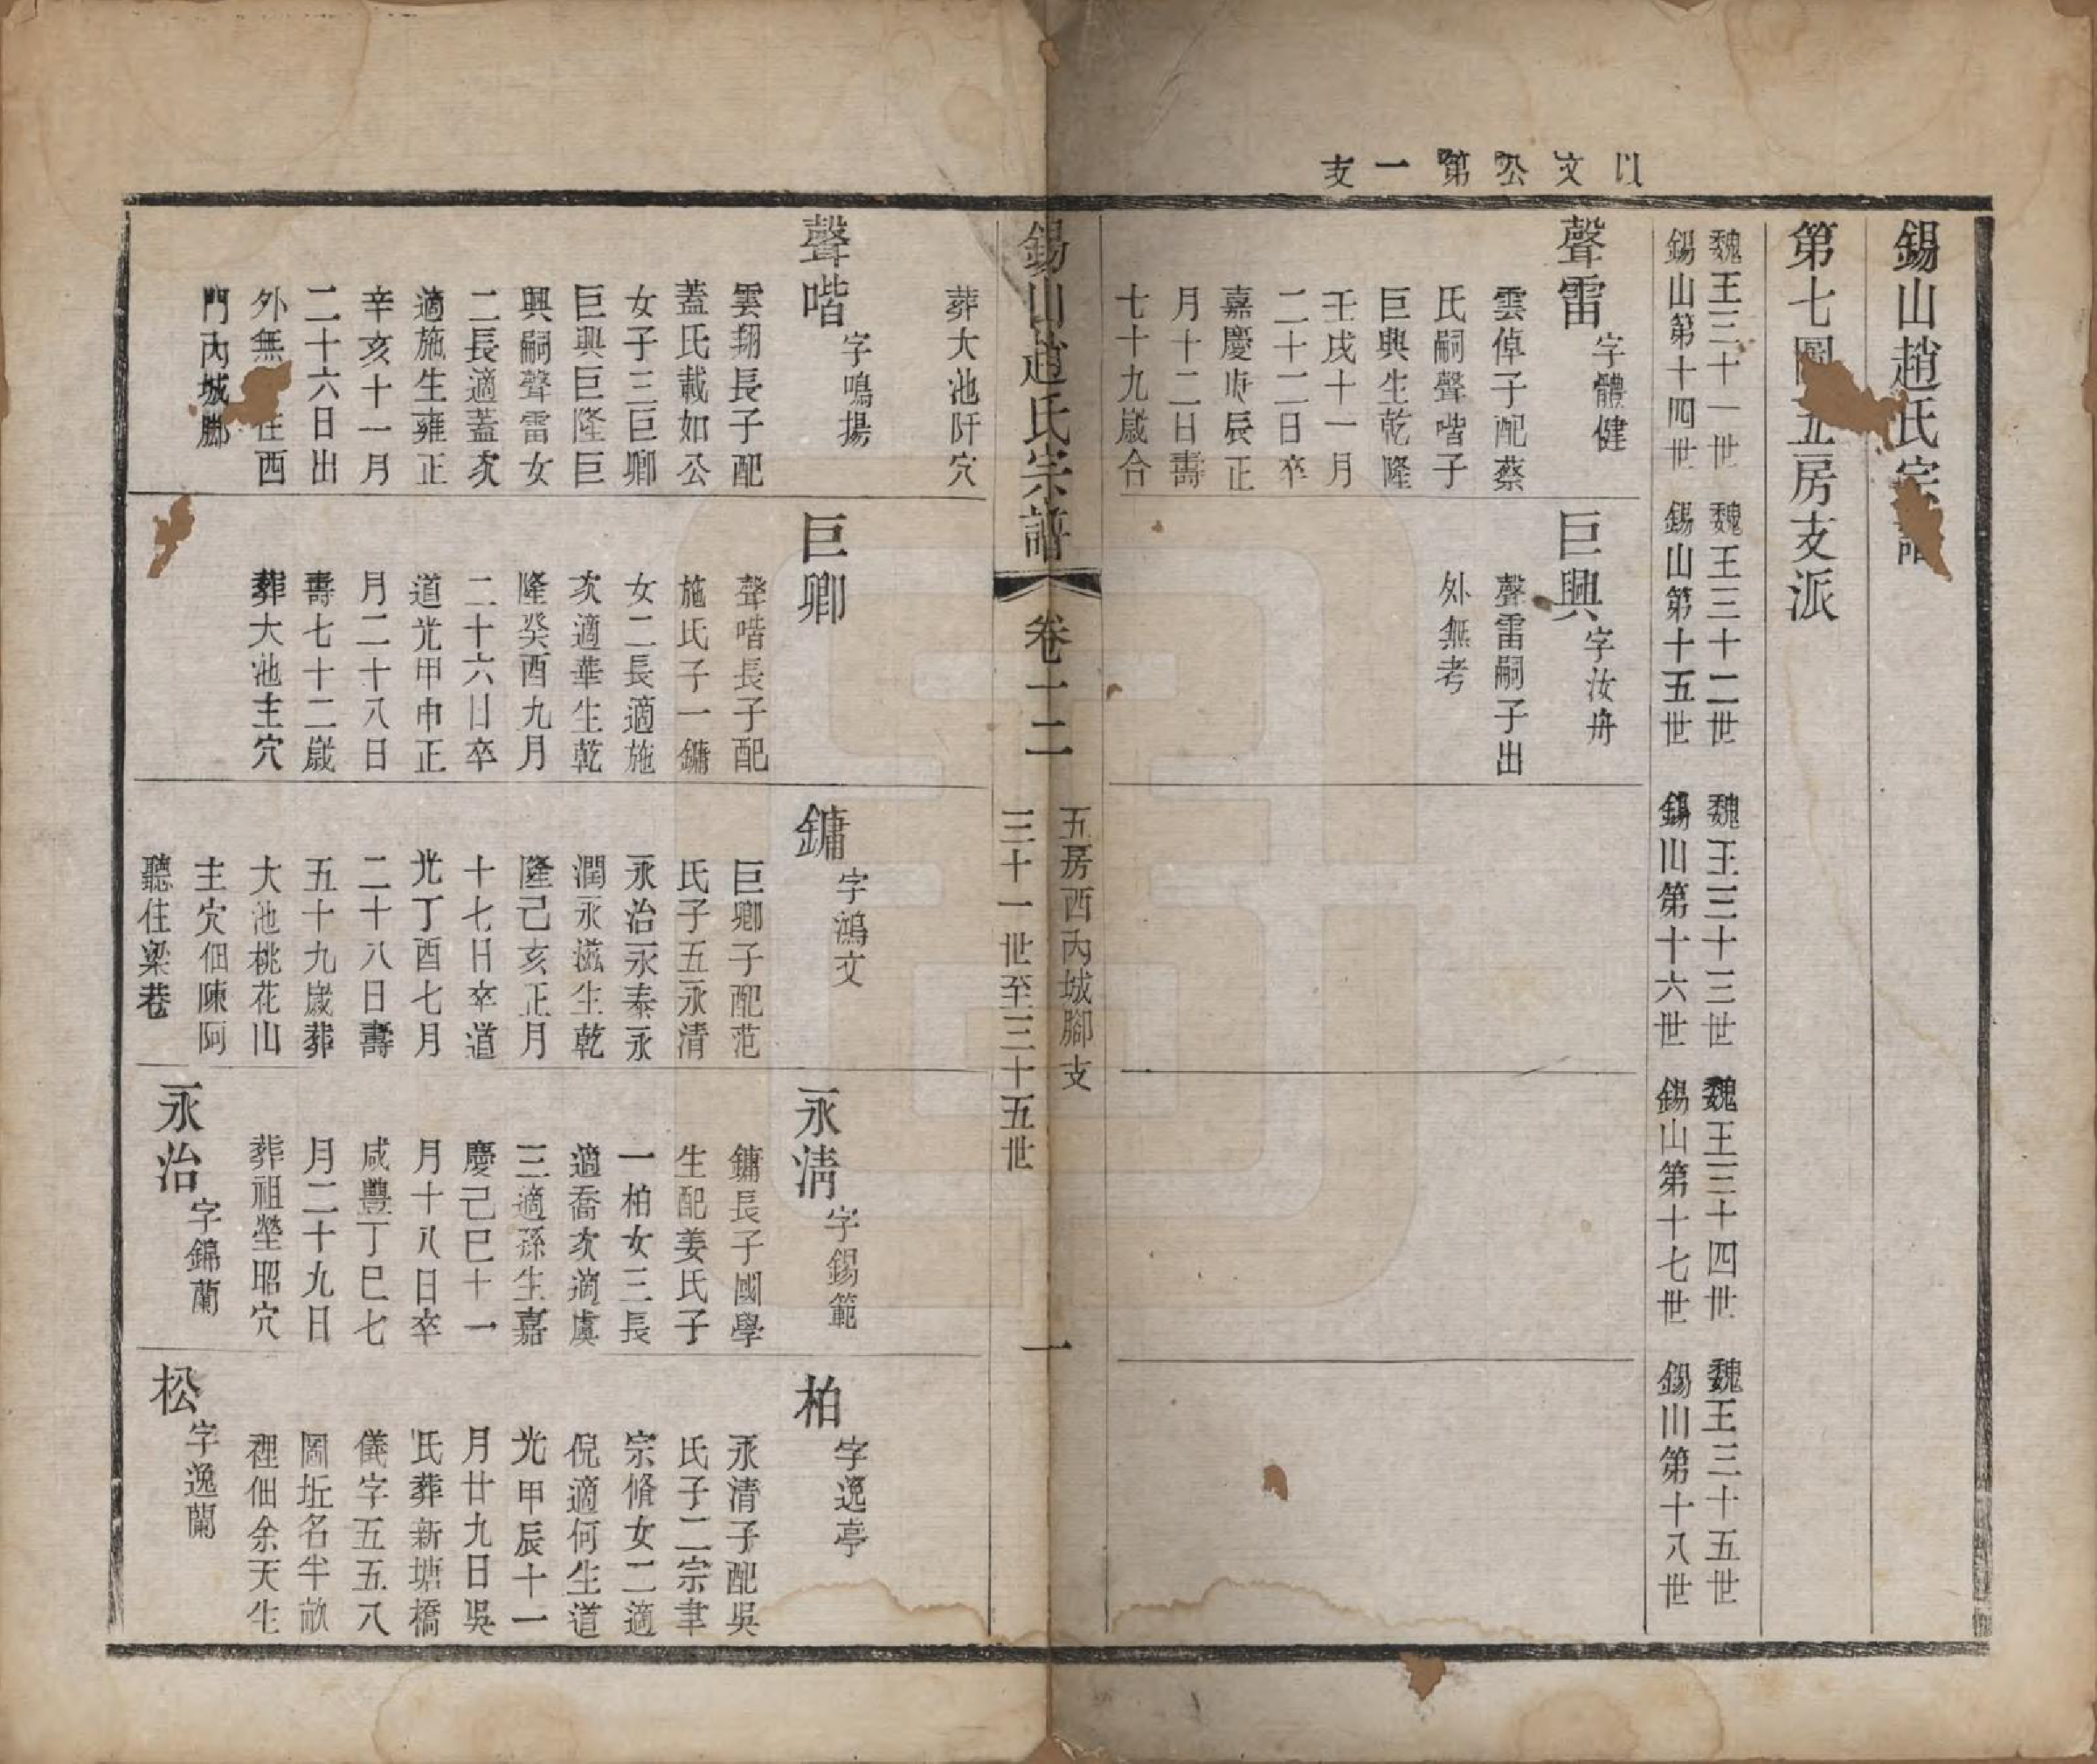 以文公第一支
錫山趙氏宗譜
第七圖五房支派
魏王三十一世
錫山第十四世
魏王三十二世
錫山第十五世
魏王三十三世
錫山第十六世
魏王三十四世
錫山第十七世
魏王三十五世
錫山第十八世
聲雷字體健
雲倬子配蔡
氏嗣聲喈子
巨興生乾隆
壬戌十一月
二十二日卒
嘉慶庚辰正
月十二日壽
七十九歲合
葬大池阡穴
巨興字汝舟
聲雷嗣子出
外無考
錫山趙氏宗譜 卷十二
五房西內城腳支
三十一世至三十五世
一
聲喈字鳴揚
雲翔長子配
蓋氏載如公
女子三巨卿
巨興巨隆巨
興嗣聲雷女
二長適蓋次
適施生雍正
辛亥十一月
二十六日出
外無 住西
門內城腳
巨卿
聲喈長子配
施氏子一鏞
女二長適施
次適華生乾
隆癸酉九月
二十六日卒
道光甲申正
月二十八日
壽七十二歲
葬大池主穴
鏞字鴻文
巨卿子配范
氏子五永清
永治永泰永
潤永滋生乾
隆己亥正月
十七日卒道
光丁酉七月
二十八日壽
五十九歲葬
大池桃花山
主穴佃陳阿
聽住梁巷
永清字錫範
鏞長子國學
生配姜氏子
一柏女三長
適喬次適虞
三適孫生嘉
慶己巳十一
月十八日卒
咸豐丁巳七
月二十九日
葬祖塋昭穴
永治字錦蘭
柏字逸亭
永清子配吳
氏子二宗聿
宗脩女二適
倪適何生道
光甲辰十一
月廿九日吳
氏葬新塘橋
儀字五五八
圖坵名半畝
裡佃余天生
松字逸蘭